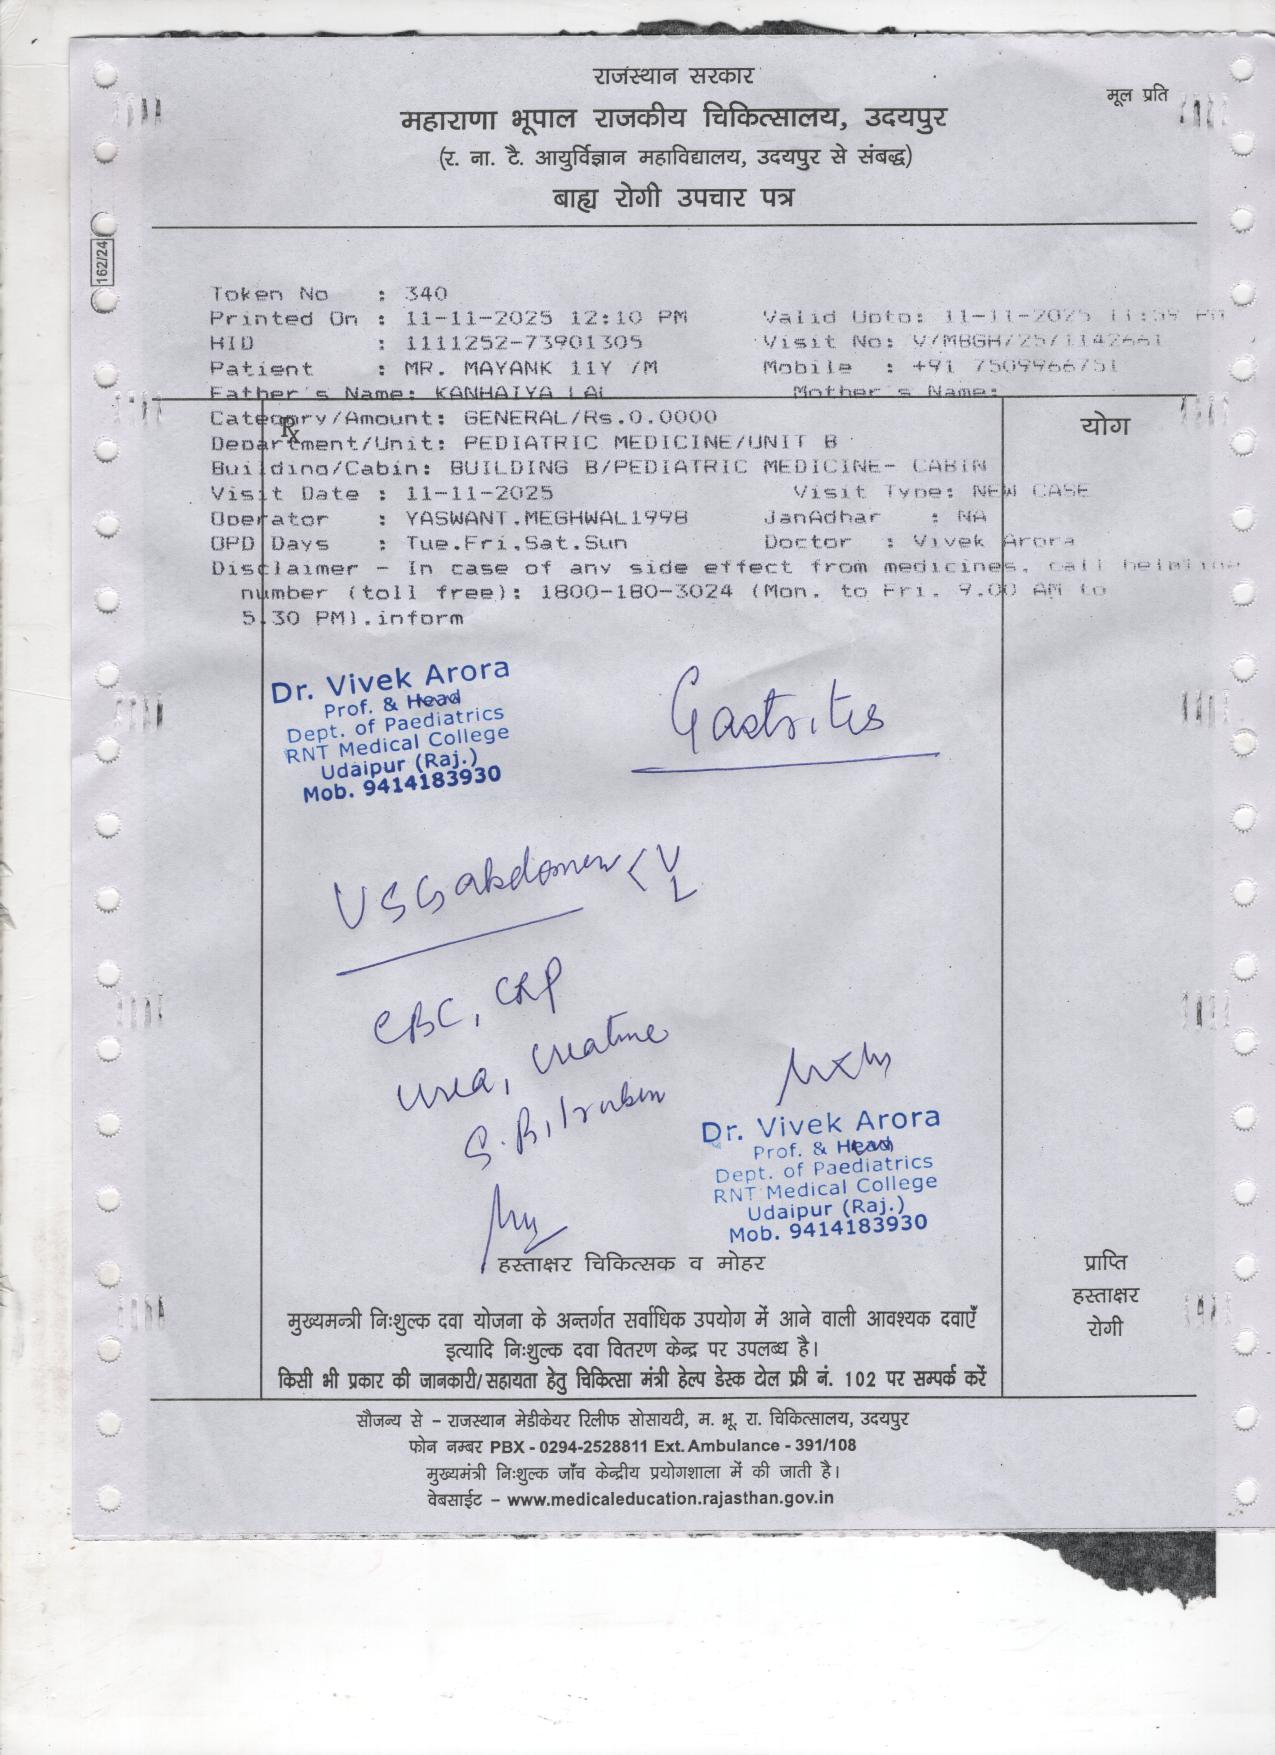 राजस्थान सरकार
मूल प्रति
महाराणा भूपाल राजकीय चिकित्सालय, उदयपुर
(र. ना. टै. आयुर्विज्ञान महाविद्यालय, उदयपुर से संबद्ध)
बाह्य रोगी उपचार पत्र
162/24
Token No : 340
Printed On : 11-11-2025 12:10 PM Valid Upto: 11-11-2025 11:59 PM
HID : 1111252-73901305 Visit No: V/MBGH/25/1142661
Patient : MR. MAYANK 11Y /M Mobile : +91 7509966751
Father's Name: KANHAIYA LAL Mother's Name:
Category/Amount: GENERAL/Rs.0.0000
Rx
योग
Department/Unit: PEDIATRIC MEDICINE/UNIT B
Building/Cabin: BUILDING B/PEDIATRIC MEDICINE- CABIN
Visit Date : 11-11-2025 Visit Type: NEW CASE
Operator : YASWANT.MEGHWAL1998 JanAdhar : NA
OPD Days : Tue.Fri.Sat.Sun Doctor : Vivek Arora
Disclaimer - In case of any side effect from medicines, call helpline
number (toll free): 1800-180-3024 (Mon. to Fri. 9.00 AM to
5.30 PM).inform
Dr. Vivek Arora
Prof. & Head
Dept. of Paediatrics
RNT Medical College
Udaipur (Raj.)
Mob. 9414183930
Gastritis
USG abdomen < U
L
CBC, CRP
Urea, Creatine
S. Bilruben
Dr. Vivek Arora
Prof. & Head
Dept. of Paediatrics
RNT Medical College
Udaipur (Raj.)
Mob. 9414183930
हस्ताक्षर चिकित्सक व मोहर
प्राप्ति
हस्ताक्षर
रोगी
मुख्यमन्त्री निःशुल्क दवा योजना के अन्तर्गत सर्वाधिक उपयोग में आने वाली आवश्यक दवाएँ
इत्यादि निःशुल्क दवा वितरण केन्द्र पर उपलब्ध है।
किसी भी प्रकार की जानकारी/सहायता हेतु चिकित्सा मंत्री हेल्प डेस्क टोल फ्री नं. 102 पर सम्पर्क करें
सौजन्य से – राजस्थान मेडीकेयर रिलीफ सोसायटी, म. भू. रा. चिकित्सालय, उदयपुर
फोन नम्बर PBX - 0294-2528811 Ext. Ambulance - 391/108
मुख्यमंत्री निःशुल्क जाँच केन्द्रीय प्रयोगशाला में की जाती है।
वेबसाईट – www.medicaleducation.rajasthan.gov.in